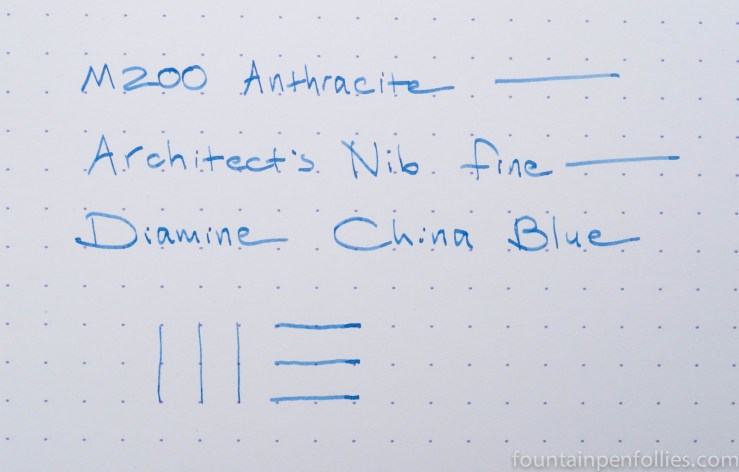 M200 Anthracite
Architect's Nib fine
Diamine China Blue
fountainpenfollies.com